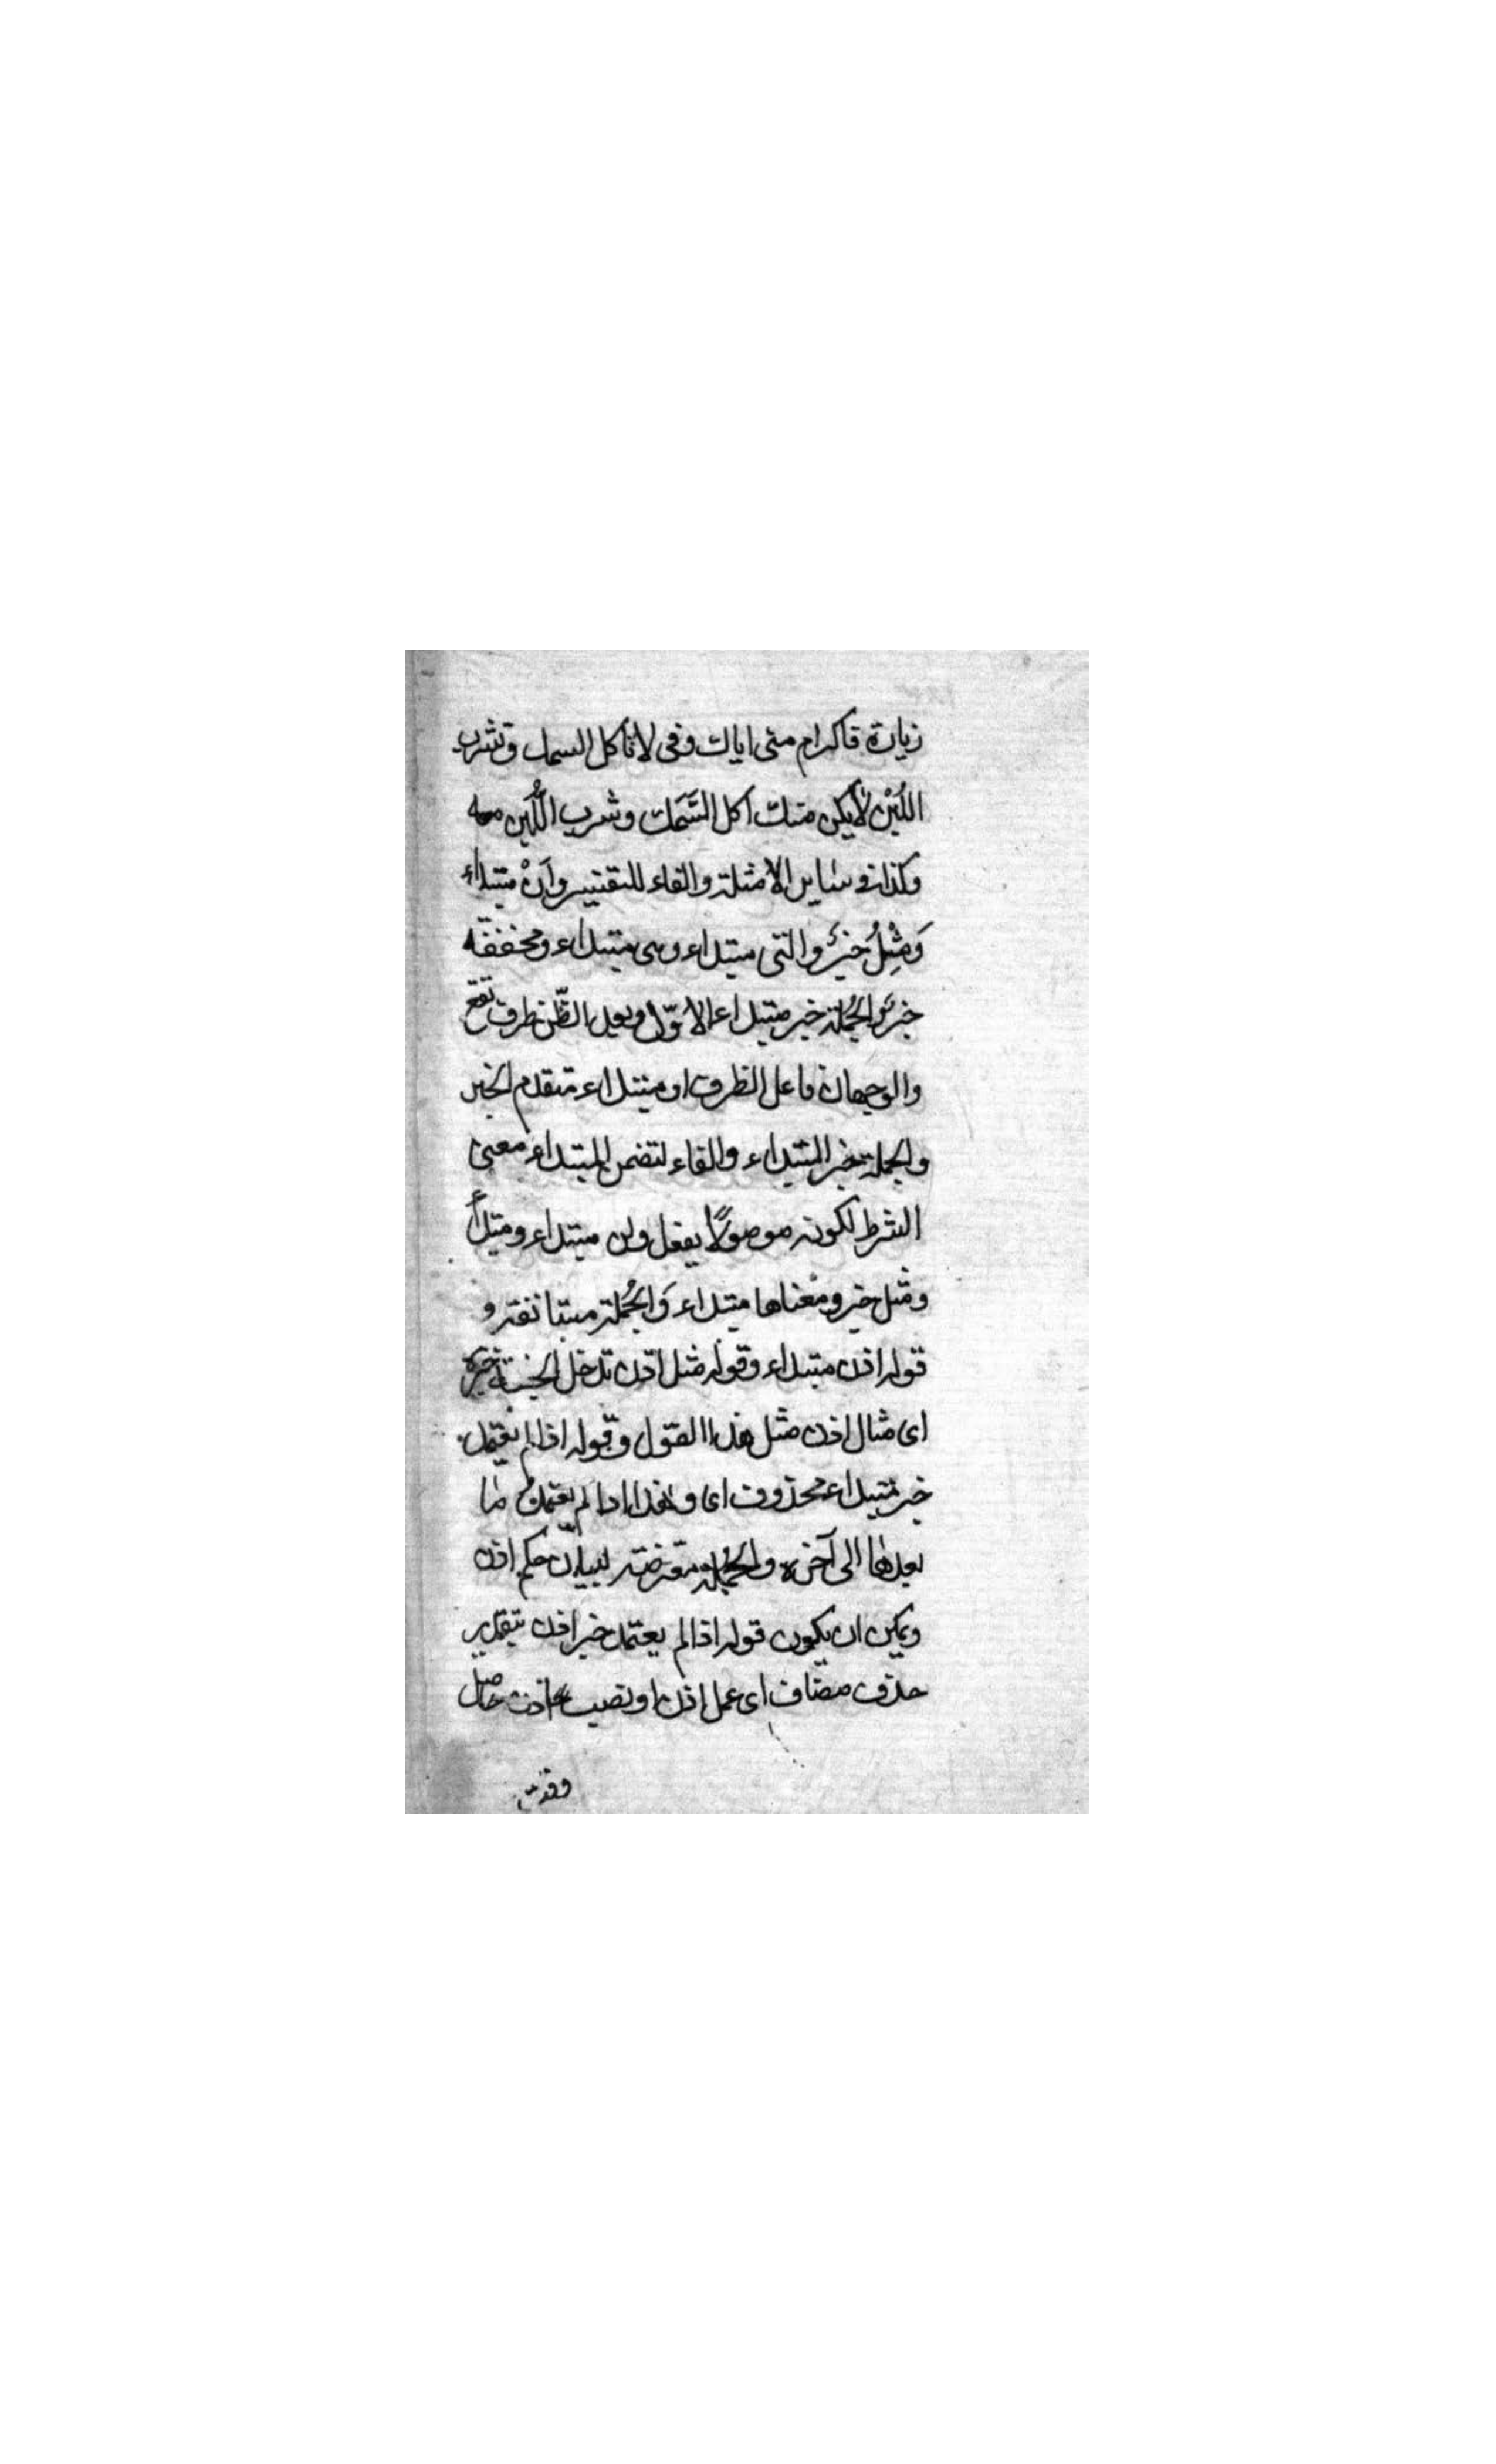 زيارة فاكرام منى اياك وفى لا تأكل السمك وتشرب
اللبن لايكن منك اكل السَّمَك وشرب اللبن معه
وكذا فى ساير الامثلة والفاء للتفسير وَاَنْ مبتداء
وَمِثْلُ خبرُ والتى مبتداء وهى مبتداء ومخففة
خبرُ والجُملة خبر مبتداء الاوّل وبعد الظّن ظرف تقع
والوجهان فاعل الظرف او مبتداء متقدم الخبر
والجملة خبر المبتداء والفاء لتضمن المبتداء معنى
الشرط لكونه موصولًا بفعل ولن مبتداء ومبتدأ
ومثل خبر ومعناها مبتداء وَالجُملة مستانفة و
قوله اذن مبتداء وقوله مثل اذن تدخل الجنة خبره
اى مثال اذن مثل هذا القول وقوله اذا لم يعتمد
خبر مبتداء محذوف اى وهذا اذا لم يعتمد ما
بعدها الى آخره والجُملة معترضة لبيان حكم اذن
ويمكن ان يكون قوله اذا لم يعتمد خبر اذن بتقدير
حذف مضاف اى عمل اذن او نصب اذن حاصل
وقت